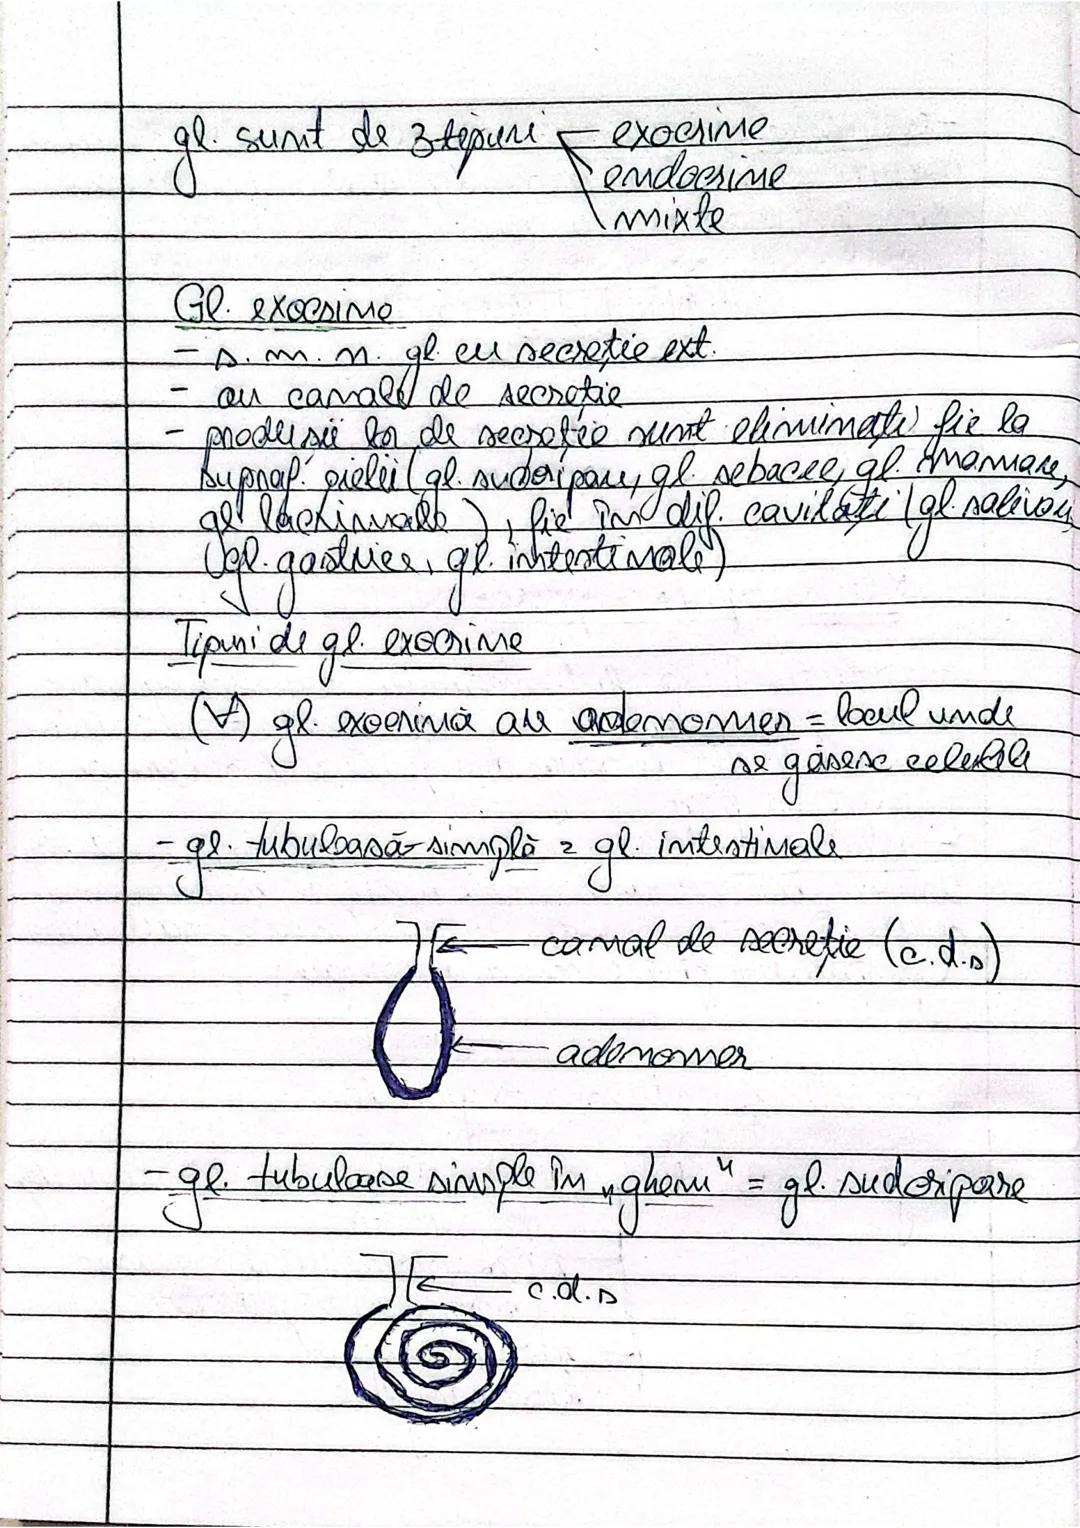 gl. sunt de 3 tipuri exocrine
endocrine
mixte
Gl. exocrine
- s.m.n. gl. cu secreție ext.
- au canale de secreție
- produșii lor de secreție sunt eliminați fie la
supraf. pielii (gl. sudoripare, gl. sebacee, gl. mamare,
gl. lacrimale), fie în dif. cavități (gl. salivare,
gl. gastrice, gl. intestinale)
Tipuri de gl. exocrine
(∀) gl. exocrină are adenomer = locul unde
se găsesc celulele
- gl. tubuloasă-simplă = gl. intestinale
canal de secreție (c.d.s)
adenomer
- gl. tubuloase simple în „ghem" = gl. sudoripare
c.d.s